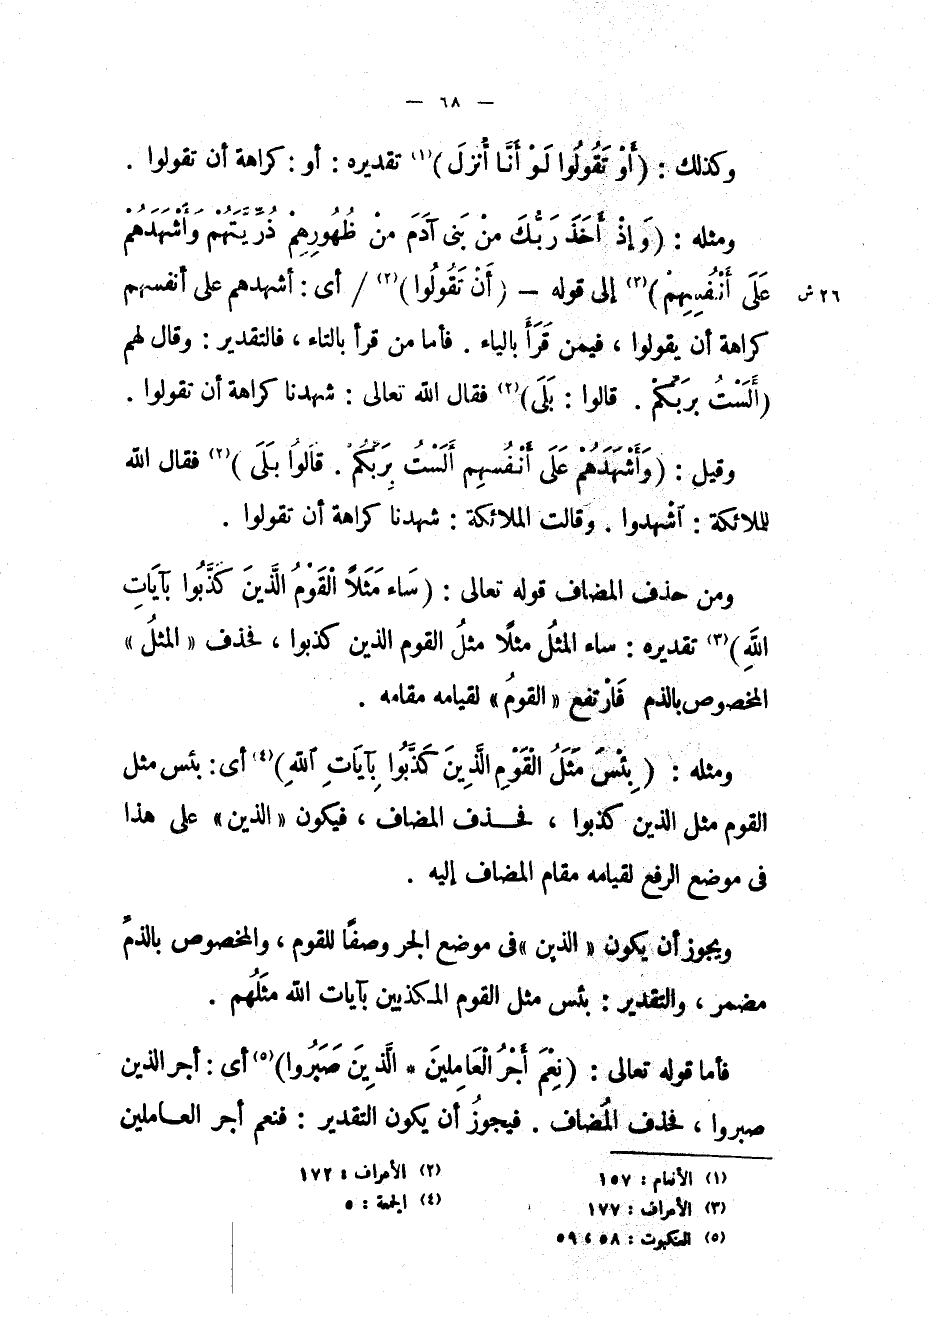 — ٦٨ —
وكذلك : (أَوْ تَقُولُوا لَوْ أَنَّا أُنزِلَ)(١) تقديره : أو : كراهة أن تقولوا .
ومثله : (وَإِذْ أَخَذَ رَبُّكَ مِنْ بَنِى آدَمَ مِنْ ظُهُورِهِمْ ذُرِّيَّتَهُمْ وَأَشْهَدَهُمْ
٢٦ش عَلَى أَنْفُسِهِمْ)(٢) إلى قوله — (أَنْ تَقُولُوا)(٢) / أى : أشهدهم على أنفسهم
كراهة أن يقولوا ، فيمن قَرَأَ بالياء . فأما من قرأ بالتاء ، فالتقدير : وقال لهم
(أَلَسْتُ بِرَبِّكُمْ . قالوا : بَلَى)(٢) فقال الله تعالى : شهدنا كراهة أن تقولوا .
وقيل : (وَأَشْهَدَهُمْ عَلَى أَنْفُسِهِم أَلَسْتُ بِرَبِّكُمْ . قَالُوا بَلَى )(٢) فقال الله
للملائكة : ٱشْهدوا . وقالت الملائكة : شهدنا كراهة أن تقولوا .
ومن حذف المضاف قوله تعالى : (سَاء مَثَلاً الْقَوْمُ الَّذِينَ كَذَّبُوا بِآيَاتِ
اللَّهِ)(٣) تقديره : ساء المثلُ مثلًا مثلُ القوم الذين كذبوا ، فحذف « المثلُ »
المخصوص بالذم فَارْتفع « القومُ » لقيامه مقامه .
ومثله : ( بِئْسَ مَثَلُ الْقَوْمِ الَّذِينَ كَذَّبُوا بِآيَاتِ ٱللهِ)(٤) أى: بئس مثل
القوم مثل الذين كذبوا ، فحـــذف المضاف ، فيكون « الذين » على هذا
فى موضع الرفع لقيامه مقام المضاف إليه .
ويجوز أن يكون « الذين » فى موضع الجر وصفًا للقوم ، والمخصوص بالذمّ
مضمر ، والتقدير : بئس مثل القوم المكذبين بآيات الله مثَلُهم .
فأما قوله تعالى : (نِعْمَ أَجْرُ الْعَامِلِينَ * الَّذِينَ صَبَرُوا)(٥) أى : أجر الذين
صبروا ، فحذف المُضاف . فيجوزُ أن يكون التقدير : فنعم أجر العـاملين
(١) الأنعام : ١٥٧ (٢) الأعراف : ١٧٢
(٣) الأعراف : ١٧٧ (٤) الجمعة : ٥
(٥) العنكبوت : ٥٨ ، ٥٩